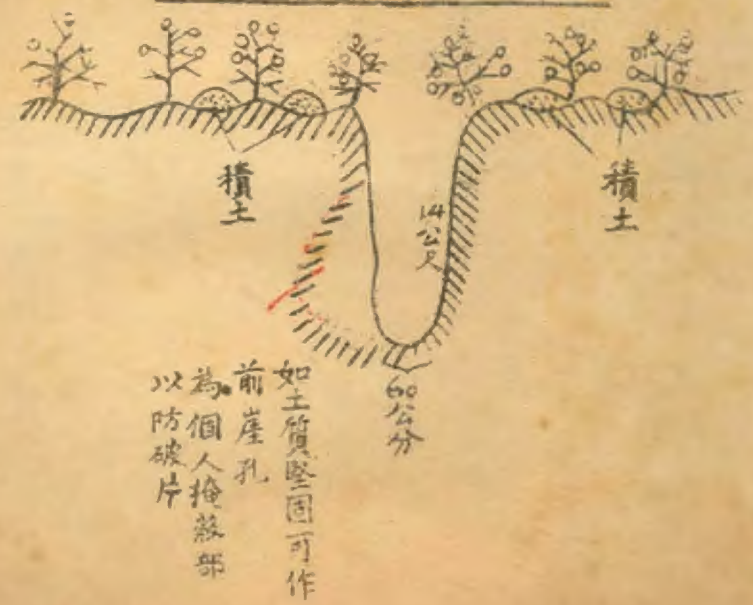 積土
積土
14公尺
60公分
如土質堅固可作
前崖孔
為個人掩蔽部
以防破片